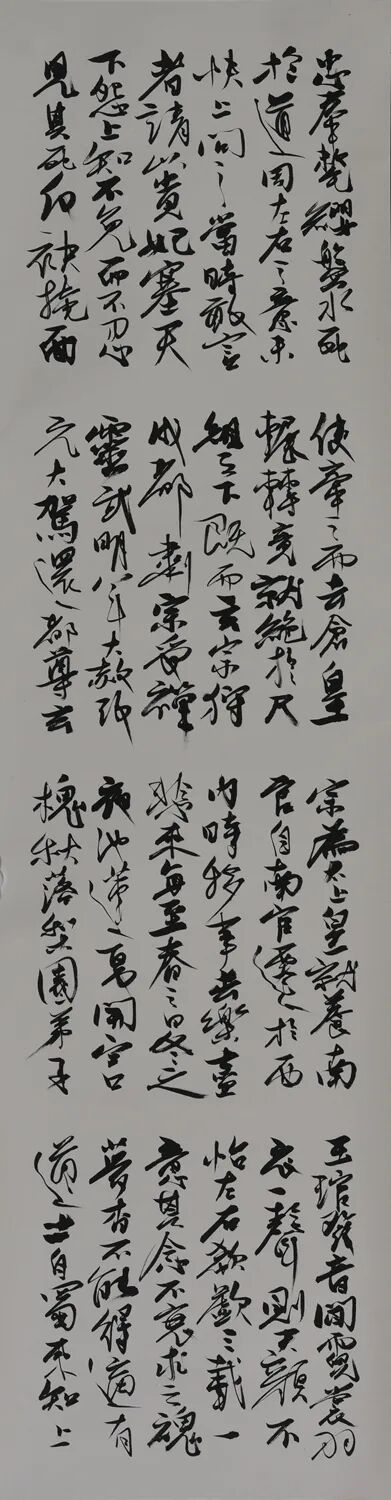 忠奉氂纓盤水死
於道周左右之意未
快上問之當時敢言
者請以貴妃塞天
下怨上知不免而不忍
見其死反袂掩面
使牽之而去倉皇
輾轉竟就絶於尺
組之下既而玄宗狩
成都肅宗受禪
靈武明年大赦改
元大駕還都尊玄
宗為太上皇就養南
宫自南宫遷於西
内時移事去樂盡
悲来每至春之日冬之
夜池蓮夏開宫
槐秋落梨園弟子
玉琯發音聞霓裳羽
衣一聲則天顔不
怡左右歔欷三載一
意其念不衰求之魂
夢杳不能得適有
道士自蜀来知上